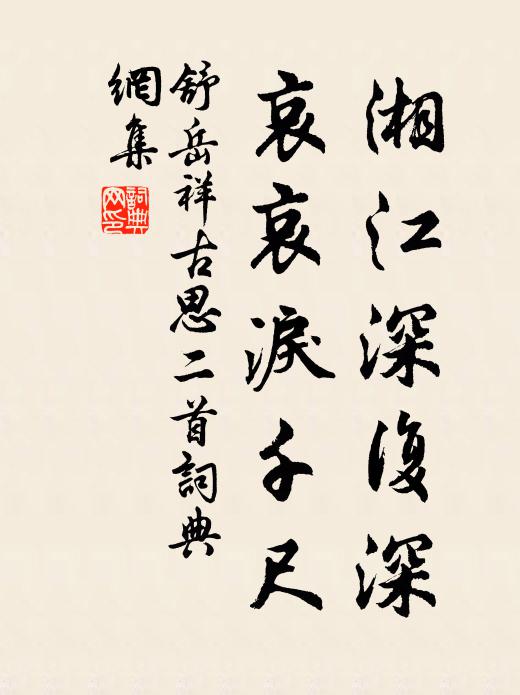 湘江深復深
哀哀淚千尺
舒岳祥古思二首詞典
網集
詞典
网印